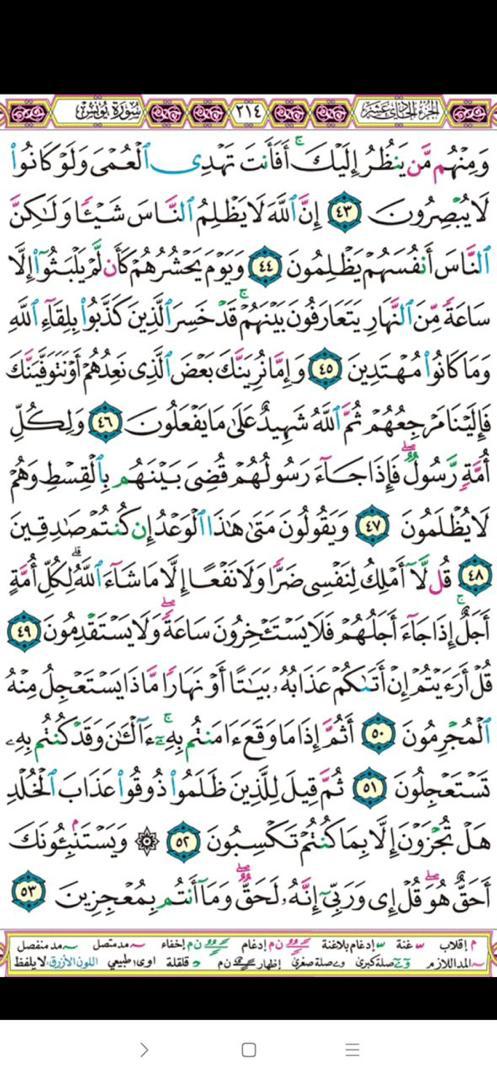 الجزء الحادي عشر ٢١٤ سورة يونس
وَمِنْهُم مَّن يَنظُرُ إِلَيْكَ ۚ أَفَأَنتَ تَهْدِى ٱلْعُمْىَ وَلَوْ كَانُوا۟
لَا يُبْصِرُونَ ٤٣ إِنَّ ٱللَّهَ لَا يَظْلِمُ ٱلنَّاسَ شَيْـًٔا وَلَـٰكِنَّ
ٱلنَّاسَ أَنفُسَهُمْ يَظْلِمُونَ ٤٤ وَيَوْمَ يَحْشُرُهُمْ كَأَن لَّمْ يَلْبَثُوٓا۟ إِلَّا
سَاعَةً مِّنَ ٱلنَّهَارِ يَتَعَارَفُونَ بَيْنَهُمْ ۚ قَدْ خَسِرَ ٱلَّذِينَ كَذَّبُوا۟ بِلِقَآءِ ٱللَّهِ
وَمَا كَانُوا۟ مُهْتَدِينَ ٤٥ وَإِمَّا نُرِيَنَّكَ بَعْضَ ٱلَّذِى نَعِدُهُمْ أَوْ نَتَوَفَّيَنَّكَ
فَإِلَيْنَا مَرْجِعُهُمْ ثُمَّ ٱللَّهُ شَهِيدٌ عَلَىٰ مَا يَفْعَلُونَ ٤٦ وَلِكُلِّ
أُمَّةٍ رَّسُولٌ ۖ فَإِذَا جَآءَ رَسُولُهُمْ قُضِىَ بَيْنَهُم بِٱلْقِسْطِ وَهُمْ
لَا يُظْلَمُونَ ٤٧ وَيَقُولُونَ مَتَىٰ هَـٰذَا ٱلْوَعْدُ إِن كُنتُمْ صَـٰدِقِينَ
٤٨ قُل لَّآ أَمْلِكُ لِنَفْسِى ضَرًّا وَلَا نَفْعًا إِلَّا مَا شَآءَ ٱللَّهُ ۗ لِكُلِّ أُمَّةٍ
أَجَلٌ ۚ إِذَا جَآءَ أَجَلُهُمْ فَلَا يَسْتَـْٔخِرُونَ سَاعَةً ۖ وَلَا يَسْتَقْدِمُونَ ٤٩
قُلْ أَرَءَيْتُمْ إِنْ أَتَىٰكُمْ عَذَابُهُۥ بَيَـٰتًا أَوْ نَهَارًا مَّاذَا يَسْتَعْجِلُ مِنْهُ
ٱلْمُجْرِمُونَ ٥٠ أَثُمَّ إِذَا مَا وَقَعَ ءَامَنتُم بِهِۦٓ ۚ ءَآلْـَٔـٰنَ وَقَدْ كُنتُم بِهِۦ
تَسْتَعْجِلُونَ ٥١ ثُمَّ قِيلَ لِلَّذِينَ ظَلَمُوا۟ ذُوقُوا۟ عَذَابَ ٱلْخُلْدِ
هَلْ تُجْزَوْنَ إِلَّا بِمَا كُنتُمْ تَكْسِبُونَ ٥٢ ۞ وَيَسْتَنۢبِـُٔونَكَ
أَحَقٌّ هُوَ ۖ قُلْ إِى وَرَبِّىٓ إِنَّهُۥ لَحَقٌّ ۖ وَمَآ أَنتُم بِمُعْجِزِينَ ٥٣
م إقلاب غنة إدغام بلاغنة ن م إدغام ن م إخفاء مد متصل مد منفصل
المد اللازم صلة كبرى صلة صغرى إظهار ن م قلقلة اوى؛ طبيعي اللون الأزرق: لا يلفظ